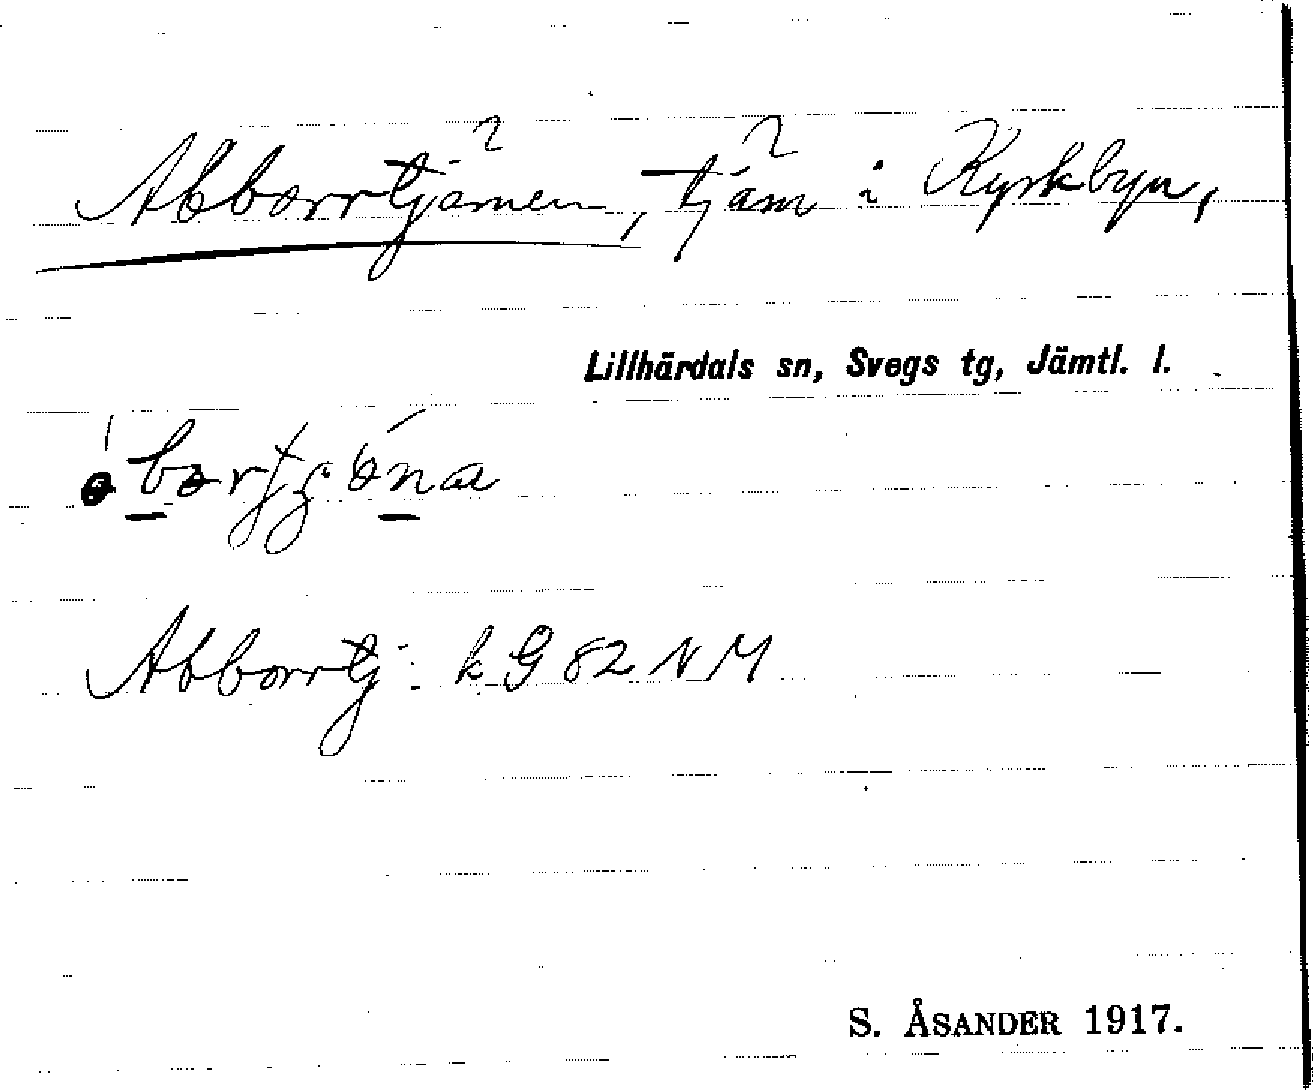 Abborrtjärnen, tjärn i Kyrkbyn,
Lillhärdals sn, Svegs tg, Jämtl. l.
Abborrtj: k G 82 NM
S. ÅSANDER 1917.